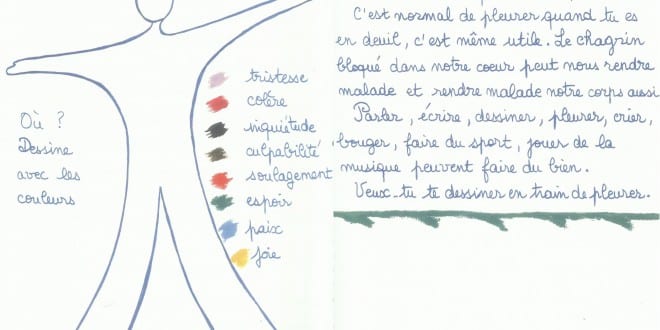 Où ?
Dessine
avec les
couleurs
tristesse
colère
inquiétude
culpabilité
soulagement
espoir
paix
joie
C'est normal de pleurer quand tu es
en deuil, c'est même utile. Le chagrin
bloqué dans notre coeur peut nous rendre
malade et rendre malade notre corps aussi
Parler, écrire, dessiner, pleurer, crier,
bouger, faire du sport, jouer de la
musique peuvent faire du bien.
Veux-tu te dessiner en train de pleurer.